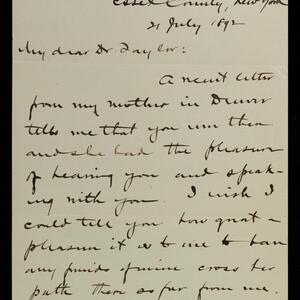 Essex County, New York
21 July 1892
My dear Dr. Taylor:
A recent letter
from my mother in Denver
tells me that you were there
and she had the pleasure
of hearing you and speak-
ing with you. I wish I
could tell you how great a
pleasure it is to me to have
any friends of mine cross her
path there so far from me.